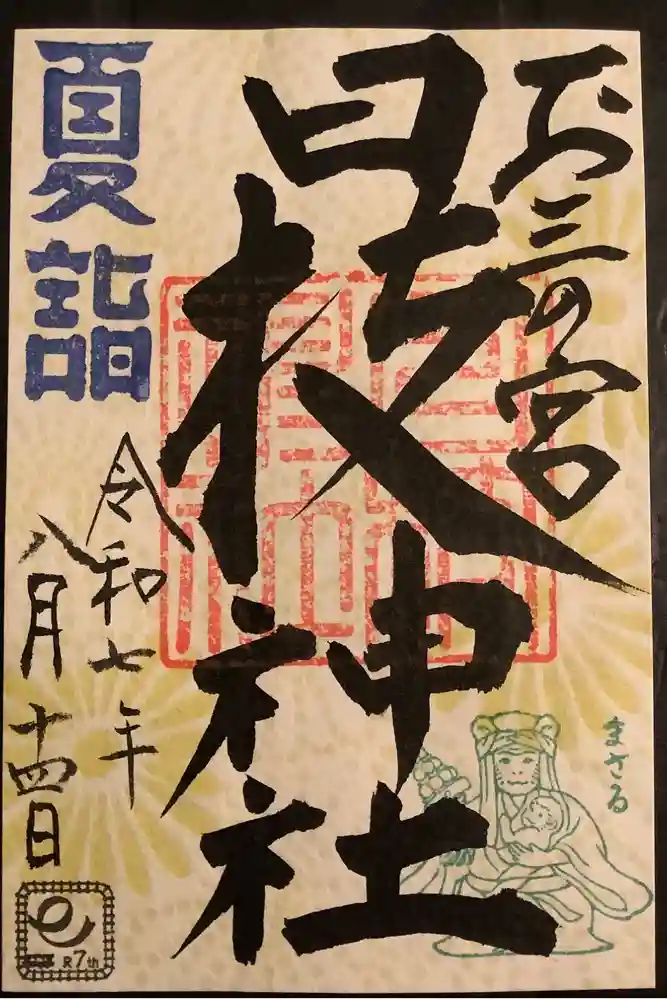 お三の宮
日枝神社
夏詣
令和七年
八月十四日
まさる
R7th